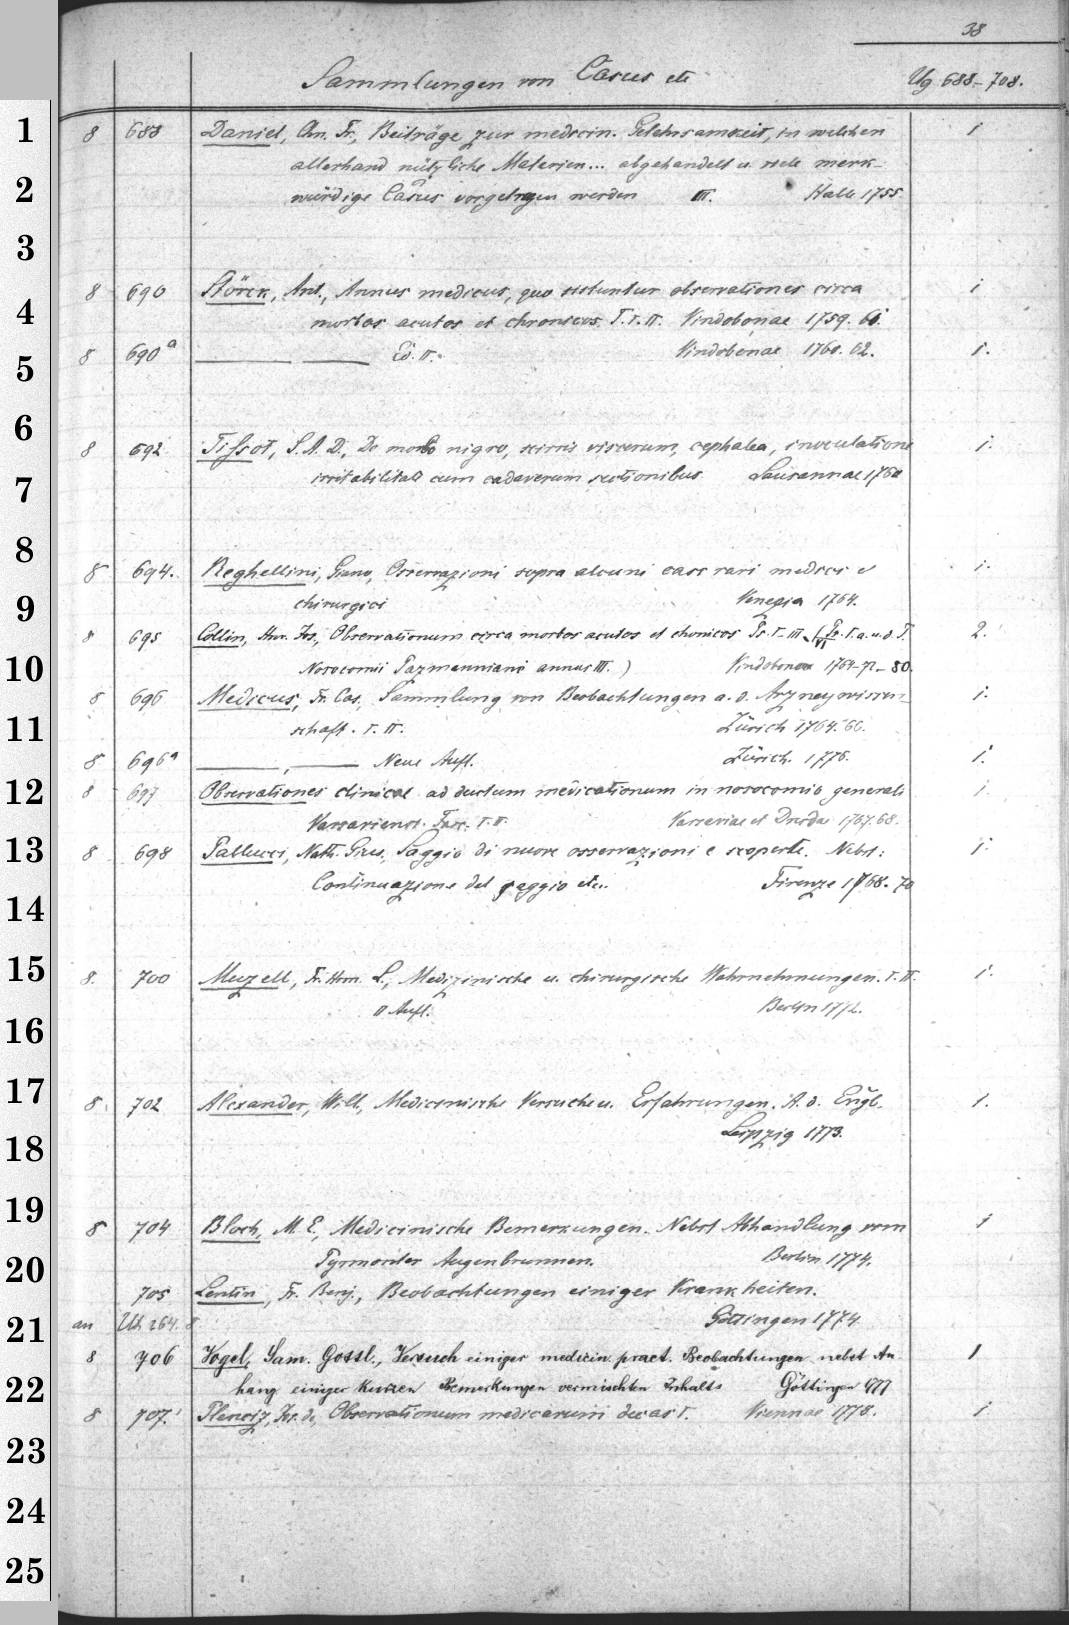 38
Sammlungen von Casus etc
Ug 688-708.
1
8 688 Daniel, Chn. Fr., Beiträge zur medicin. Gelehrsamkeit, in welchen 1
allerhand nützliche Materien... abgehandelt u. viele merk-
2
würdige Casus vorgetragen werden III. Halle 1755.
3
8 690 Störck, Ant., Annus medicus, quo sistuntur observationes circa 1
4
morbos acutos et chronicos. T. I. II. Vindobonae 1759. 61.
8 690a Ed. II. Vindobonae 1760. 62. 1.
5
6
8 692 Tissot, S. A. D., De morbo nigro, scirris viscerum, cephalea, inoculatione 1.
7
irritabilitate cum cadaverum sectionibus Lausannae 1760
8
8 694. Reghellini, Giano, Osservazioni sopra alcuni casi rari medici e 1.
9
chirurgici Venezia 1764.
8 695 Collin, Hnr. Jos., Observationum circa morbos acutos et chronicos Ps. I-III (Ps. I. a. u. d. T. 2.
10
Nosocomii Pazmanniani annus III.) Vindobonae 1764-72-80.
8 696 Medicus, Fr. Cas., Sammlung von Beobachtungen a. d. Arzneywissen- 1.
11
schaft. I. II. Zürich 1764. 66.
8 696a Neue Aufl. Zürich. 1776. 1.
12
8 697 Observationes clinicae ad ductum medicationum in nosocomio generali 1
Varsaviensi. Fasc. I. II. Varsaviae et Dresdae 1767. 68.
13
8 698 Pallucci, Nath. Gius., Saggio di nuove osservazioni e scoperte. Nebst: 1.
Continuazione del saggio etc. Firenze 1768. 70
14
15
8. 700 Muzell, Fr. Hrm. L., Medizinische u. chirurgische Wahrnehmungen. I. II. 1.
II Aufl. Berlin 1772.
16
17
8. 702 Alexander, Will., Medicinische Versuche u. Erfahrungen. A. d. Engl. 1.
Leipzig 1773.
18
19
8 704 Bloch, M. E., Medicinische Bemerkungen. Nebst Abhandlung vom 1
20
Pyrmonter Augenbrunnen. Berlin 1774.
705 Lentin, Fr. Benj., Beobachtungen einiger Krankheiten.
21
an Ud 264. 8 Göttingen 1774
8 706 Vogel, Sam. Gottl., Versuch einiger medicin. pract. Beobachtungen nebst An 1
22
hang einiger kurzen Bemerkungen vermischten Inhalts Göttingen 1777
8 707. Plenciz, Jos. de, Observationum medicarum decas I. Viennae 1778. 1
23
24
25